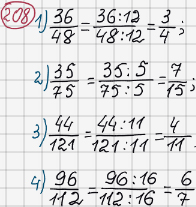 208 1) 36/48 = 36:12/48:12 = 3/4;
2) 35/75 = 35:5/75:5 = 7/15;
3) 44/121 = 44:11/121:11 = 4/11
4) 96/112 = 96:16/112:16 = 6/7